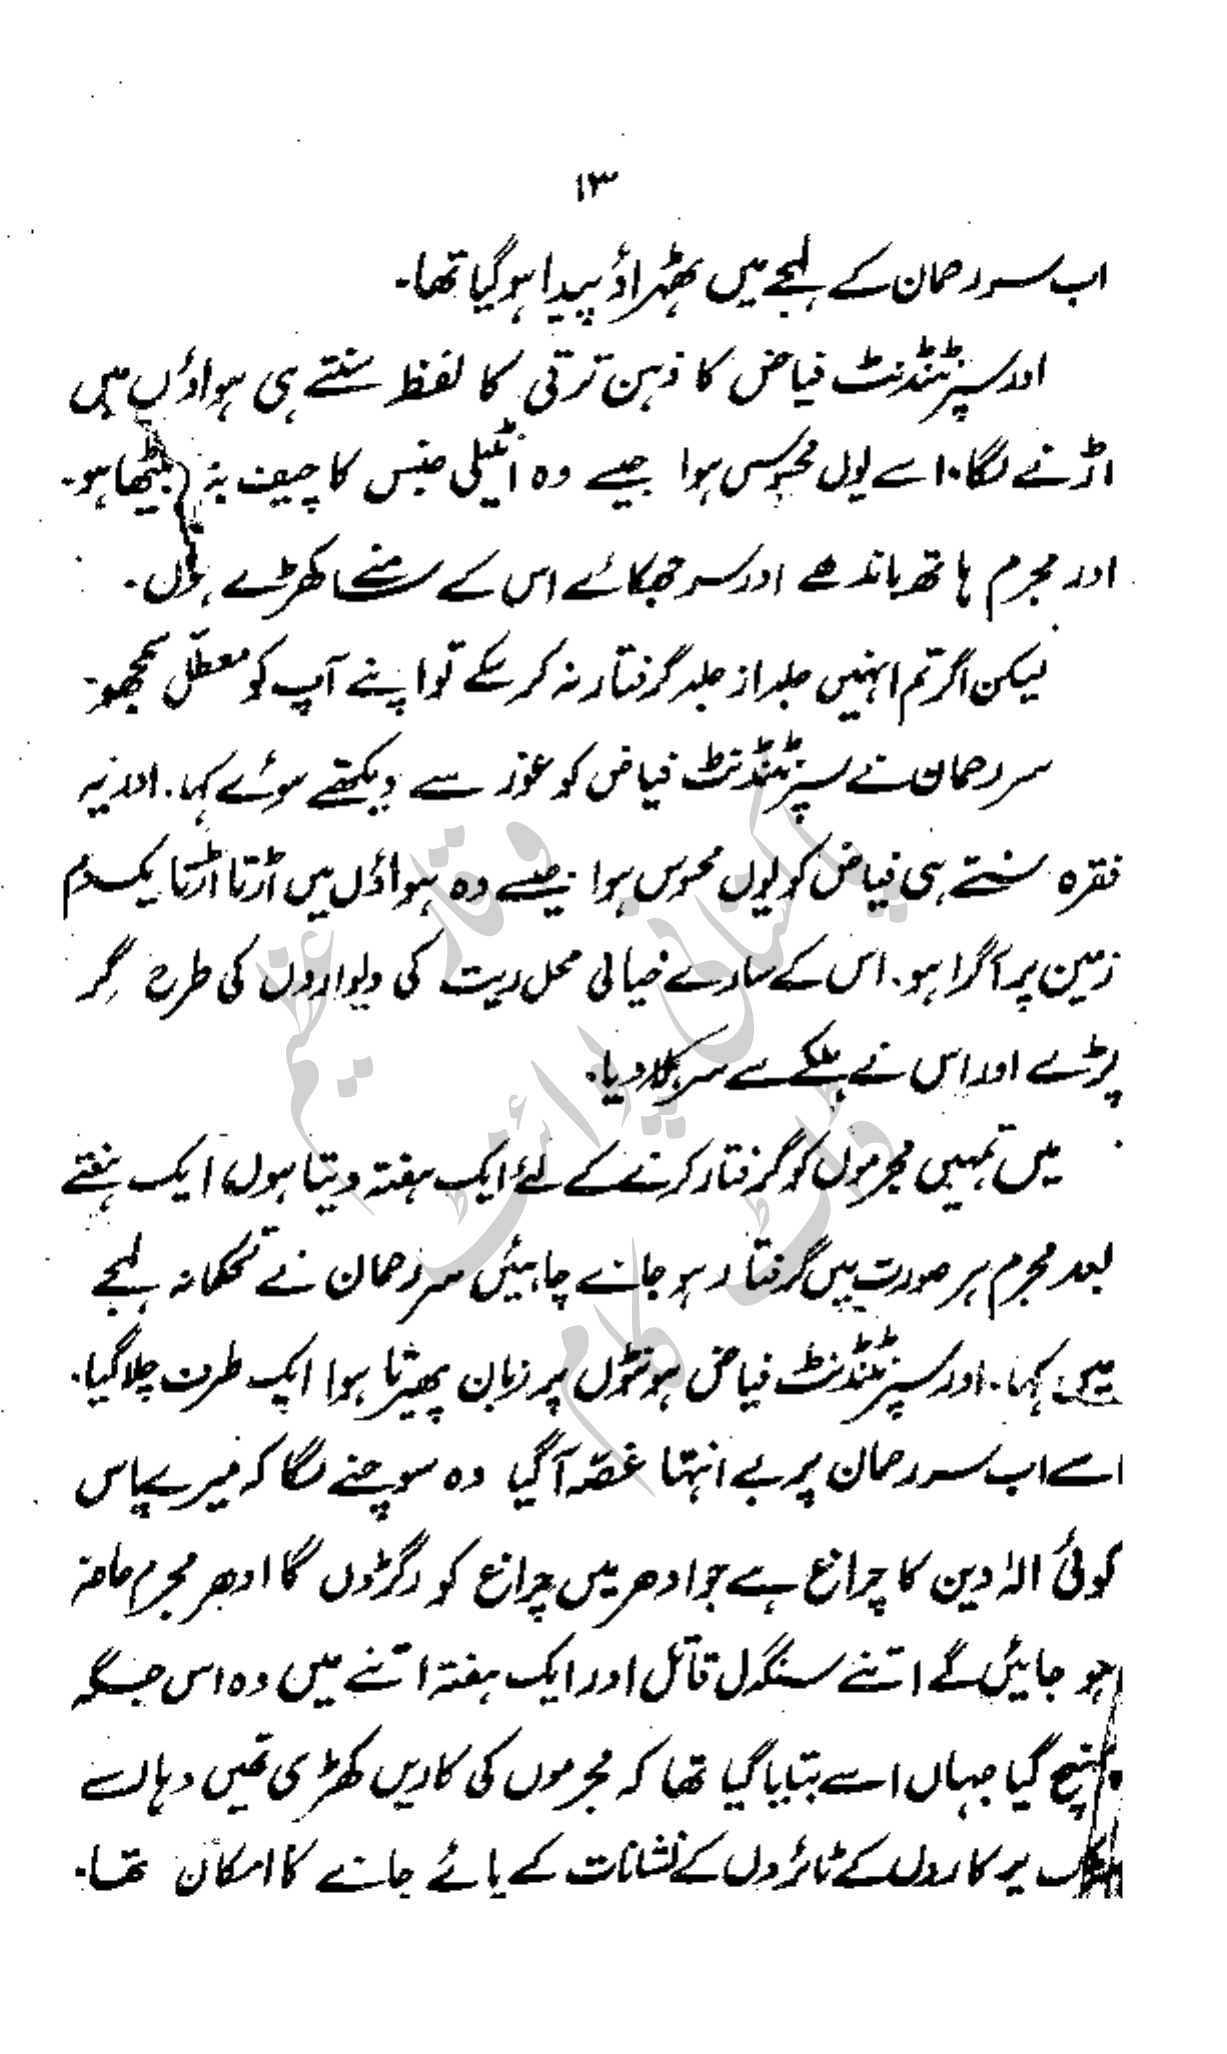 ۱۳
اب سر رحمان کے لہجے میں ٹھہراؤ پیدا ہو گیا تھا۔
اور سپرنٹنڈنٹ فیاض کا ذہن ترقی کا لفظ سنتے ہی ہواؤں میں
اڑنے لگا۔ اسے یوں محسوس ہوا جیسے وہ انٹیلی جنس کا چیف بنا بیٹھا ہو۔
اور مجرم ہاتھ باندھے اور سر جھکائے اس کے سامنے کھڑے ہوں۔
لیکن اگر تم انہیں جلد از جلد گرفتار نہ کر سکے تو اپنے آپ کو معطل سمجھو۔
سر رحمان نے سپرنٹنڈنٹ فیاض کو غور سے دیکھتے ہوئے کہا۔ اور یہ
فقرہ سنتے ہی فیاض کو یوں محسوس ہوا جیسے وہ ہواؤں میں اڑتا اڑتا یک دم
زمین پر آگرا ہو۔ اس کے سارے خیالی محل ریت کی دیواروں کی طرح گر
پڑے اور اس نے ہلکے سے سر ہلا دیا۔
میں تمہیں مجرموں کو گرفتار کرنے کے لئے ایک ہفتہ دیتا ہوں ایک ہفتے
بعد مجرم ہر صورت میں گرفتار ہو جانے چاہئیں سر رحمان نے تحکمانہ لہجے
میں کہا۔ اور سپرنٹنڈنٹ فیاض ہونٹوں پر زبان پھیرتا ہوا ایک طرف چلا گیا۔
اسے اب سر رحمان پر بے انتہا غصہ آگیا وہ سوچنے لگا کہ میرے پاس
کوئی الہ دین کا چراغ ہے جو ادھر میں چراغ کو رگڑوں گا ادھر مجرم حاضر
ہو جائیں گے اتنے سنگدل قاتل اور ایک ہفتہ اتنے میں وہ اس جگہ
پہنچ گیا جہاں اسے بتایا گیا تھا کہ مجرموں کی کاریں کھڑی تھیں وہاں سے
سڑک پر کاروں کے ٹائروں کے نشانات کے پائے جانے کا امکان تھا۔
پاکستانی پوائنٹ
ڈاٹ کام